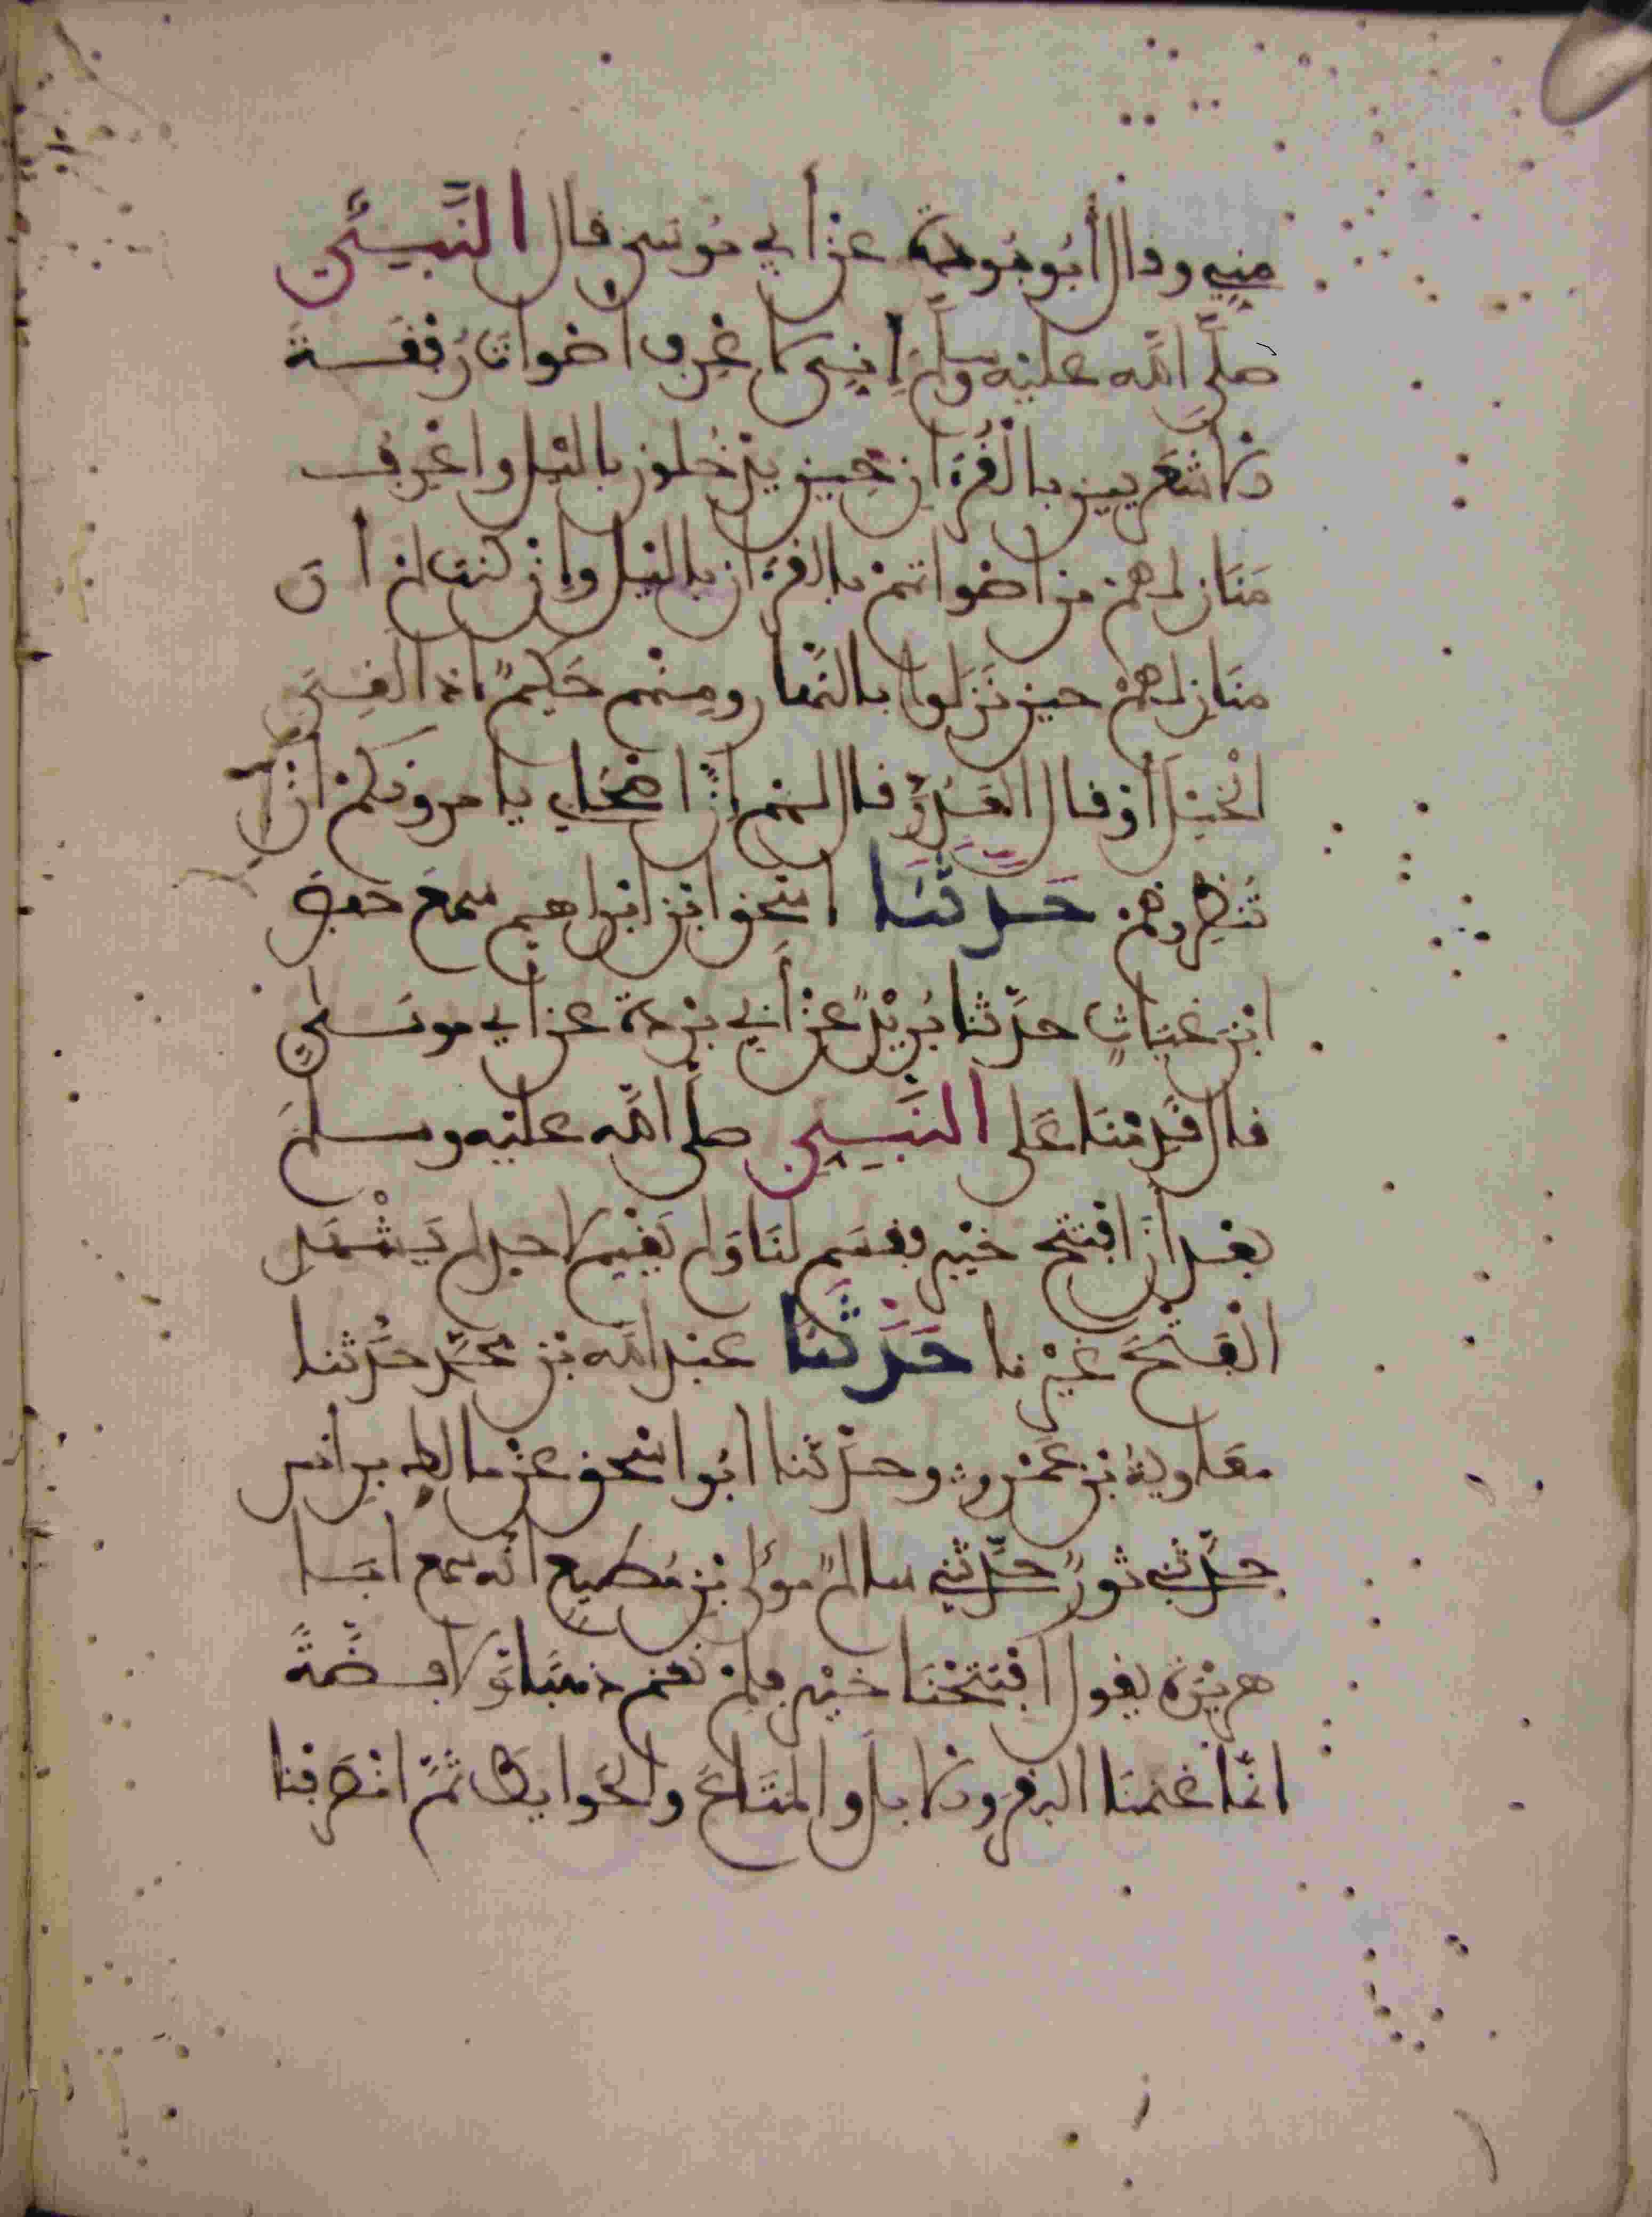 مني وقال أبو بردة عن أبي موسى قال النبيئ
صلى الله عليه وسلم إني لأعرف أصوات رفقة
الأشعريين بالقرءان حين يدخلون بالليل وأعرف
منازلهم من أصواتهم بالقرءان بالليل وإن كنت لم أر
منازلهم حين نزلوا بالنهار ومنهم حكيم إذا لقي
الخيل أو قال العدو قال لهم إن أصحابي يامرونكم أن
تنظروهم حدثنا اسحق ابن ابراهيم سمع حفص
ابن غياث حدثنا بريد عن أبي بردة عن أبي موسى
قال قدمنا على النبيئ صلى الله عليه وسلم
بعد أن افتتح خيبر فقسم لنا ولم يقسم لأحد لم يشهد
الفتح غيرنا حدثنا عبد الله بن محمد حدثنا
معاوية بن عمرو وحدثنا ابو اسحق عن مالك بن انس
حدثني ثور حدثني سالم مولى بن مطيع انه سمع ابا
هريرة يقول افتتحنا خيبر فلم نغنم ذهبا ولا فضة
انما غنمنا البقر والابل والمتاع والحوايط ثم انصرفنا